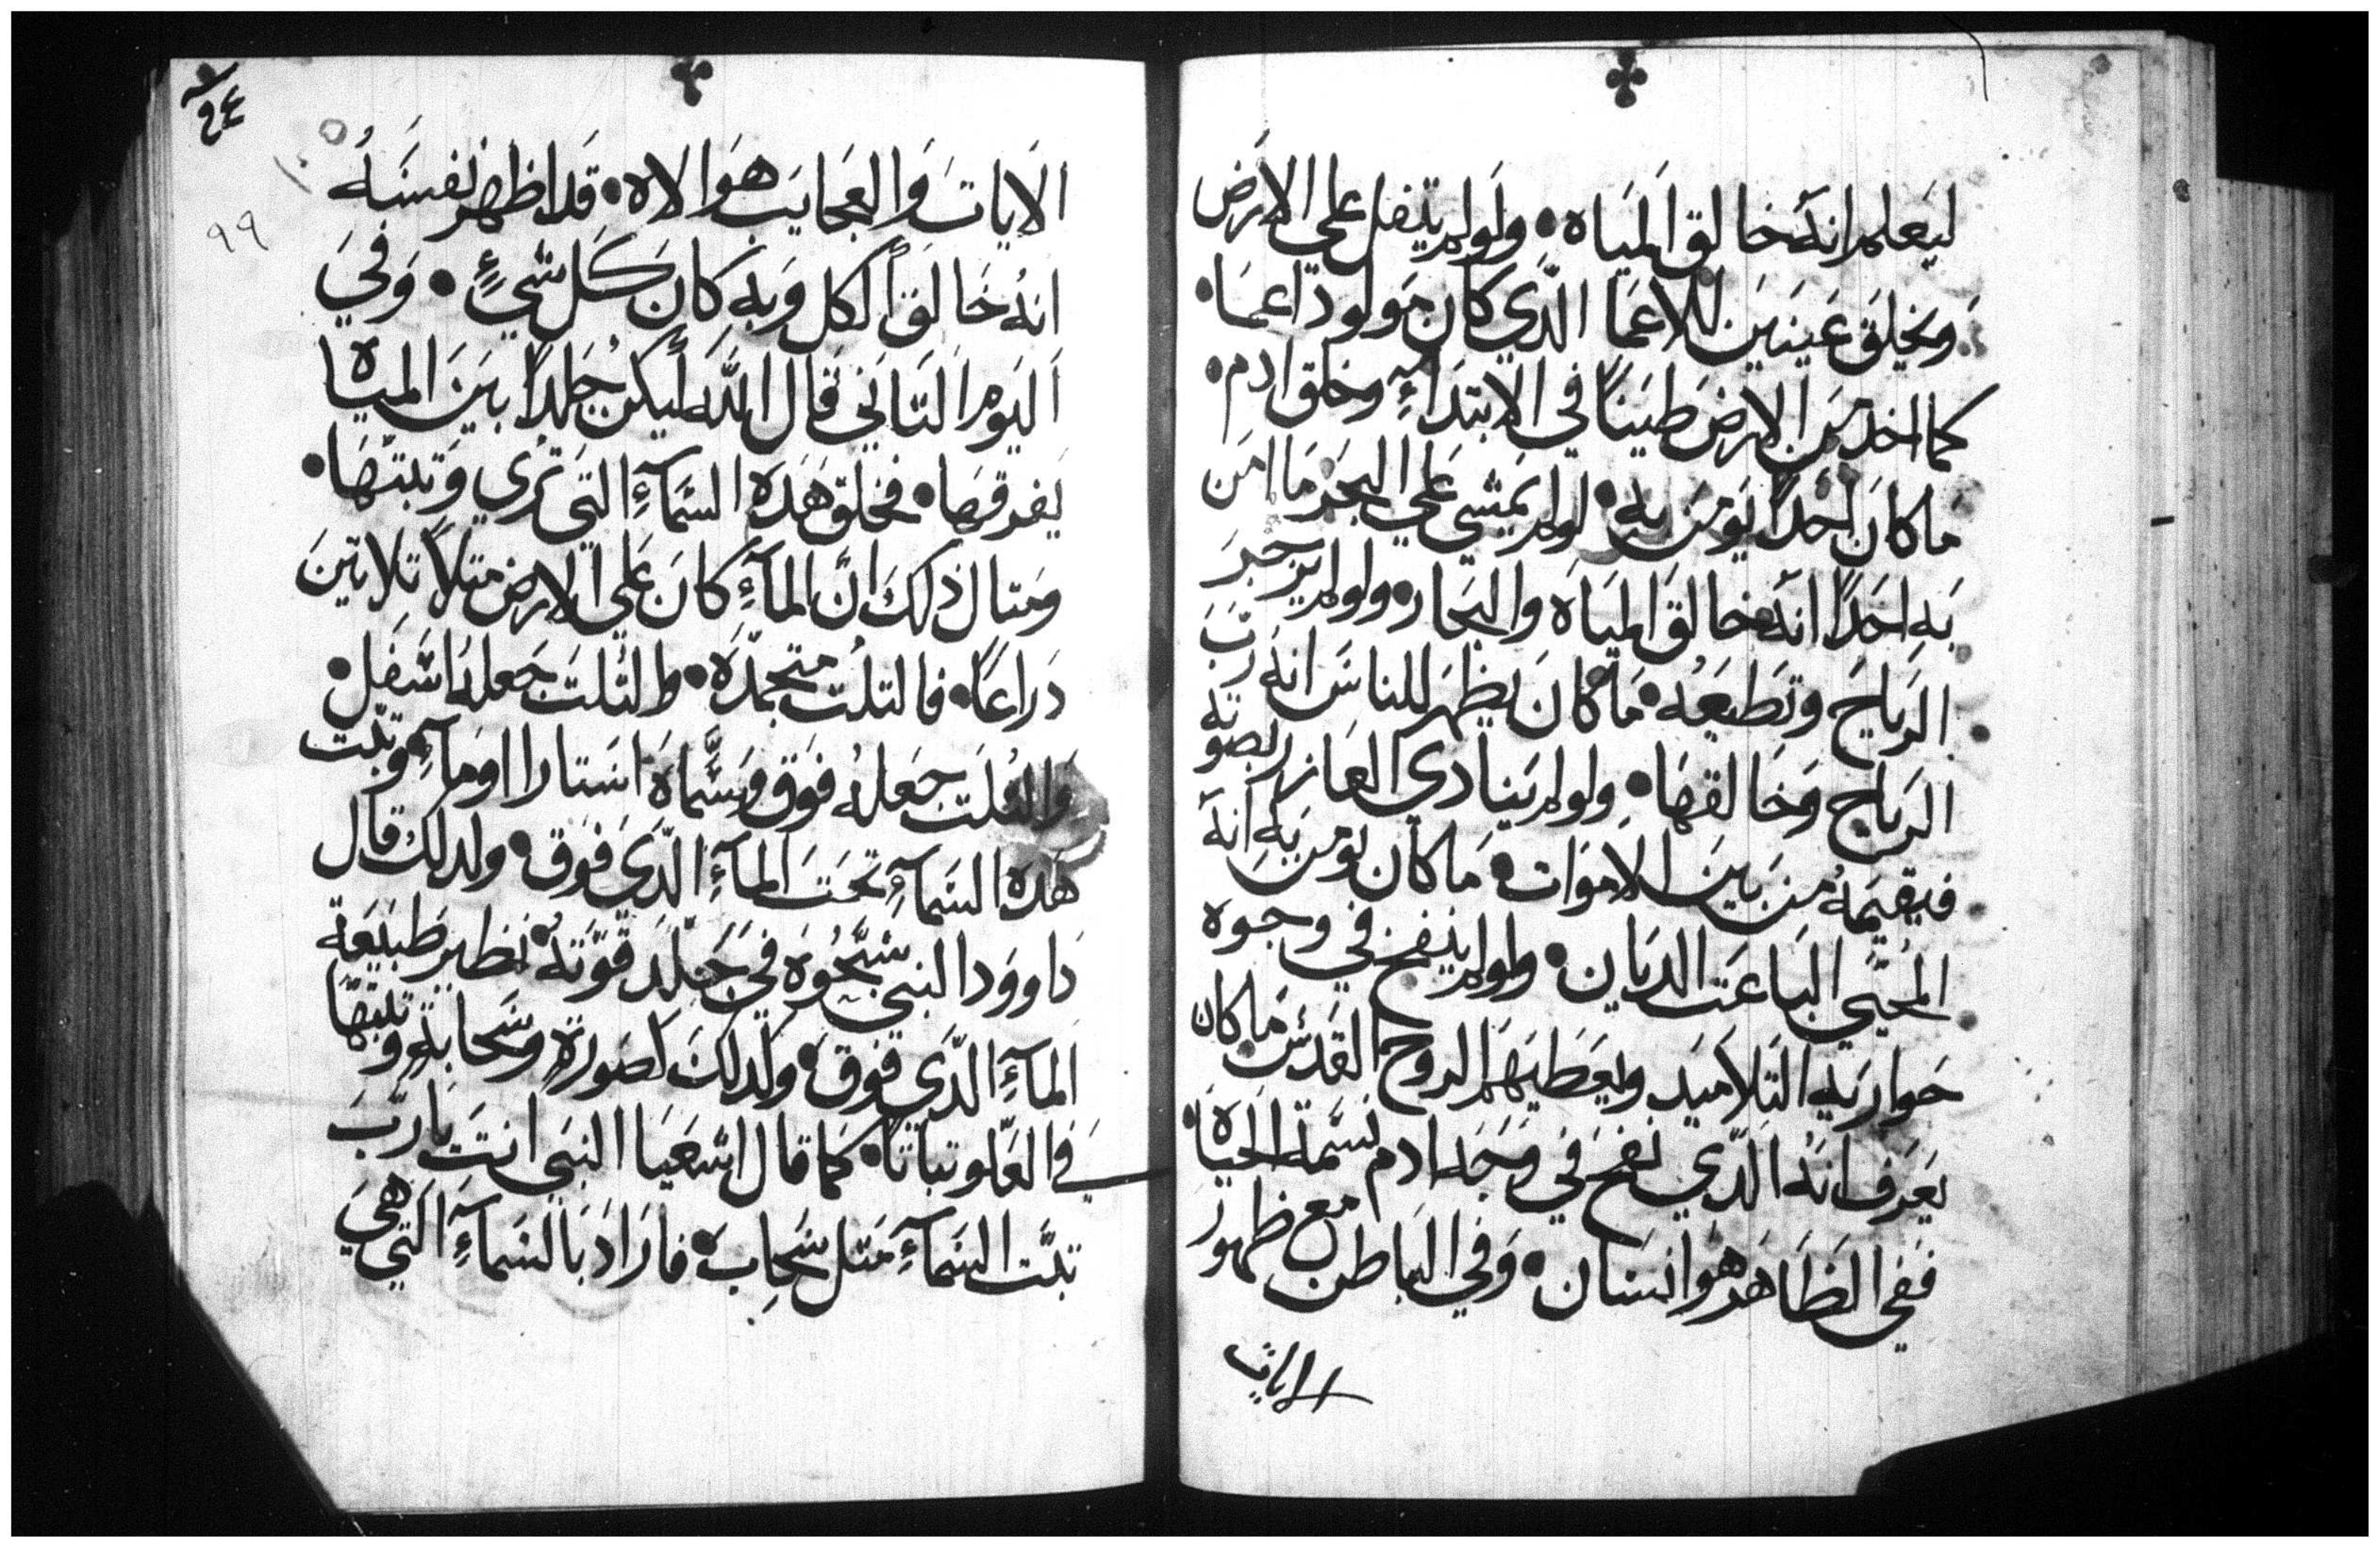 ليعلم انه خالق المياه • ولو لم يتفل علي الارض
ويخلق عينين للاعما الذي كان مولود اعما •
كما اخد من الارض طينا في الابتدآء وخلق ادم •
ما كان احدا يومن به • لو لم يمشي علي البحر ما امن
به احدا انه خالق المياه والبحار • ولو لم يزجر
الرياح وتطيعه • ما كان يظهر للناس انه رب
الرياح وخالقها • ولو لم ينادي العازر بصوته
فيقيمه من بين الاموات • ما كان يومن به انه
المحيي الباعت الديان • ولو لم ينفخ في وجوه
حواريه التلاميد ويعطيهم الروح القدس ما كان
يعرف انه الذي نفخ في وجه ادم نسمة الحياه •
ففي الظاهر هو انسان • وفي الباطن مع ظهور
الايات
٩٤
٩٩
الايات والعجايب هو الاه • قد اظهر نفسه
انه خالق الكل وبه كان كل شيء • وفي
اليوم التاني قال الله ليكن جلدا بين المياه
يفرقها • فخلق هذه السمآء التي تري وتبتها •
ومتال ذلك ان المآء كان علي الارض متلا تلاتين
دراعا • فالتلت متجمده • والتلت جعله اسفل •
والتلت جعله فوق وسماه استارا اومآء وتبت
هذه السمآء تحت المآء الذي فوق • ولدلك قال
داوود النبي سبحوه في جلد قوته • نظير طبيعة
المآء الذي فوق • ولدلك لصورة وسحابة وتبتها
في العلو تباتا • كما قال اشعيا النبي انت يا رب
تبت السمآء متل سحاب • فاراد بالسمآء التي هي